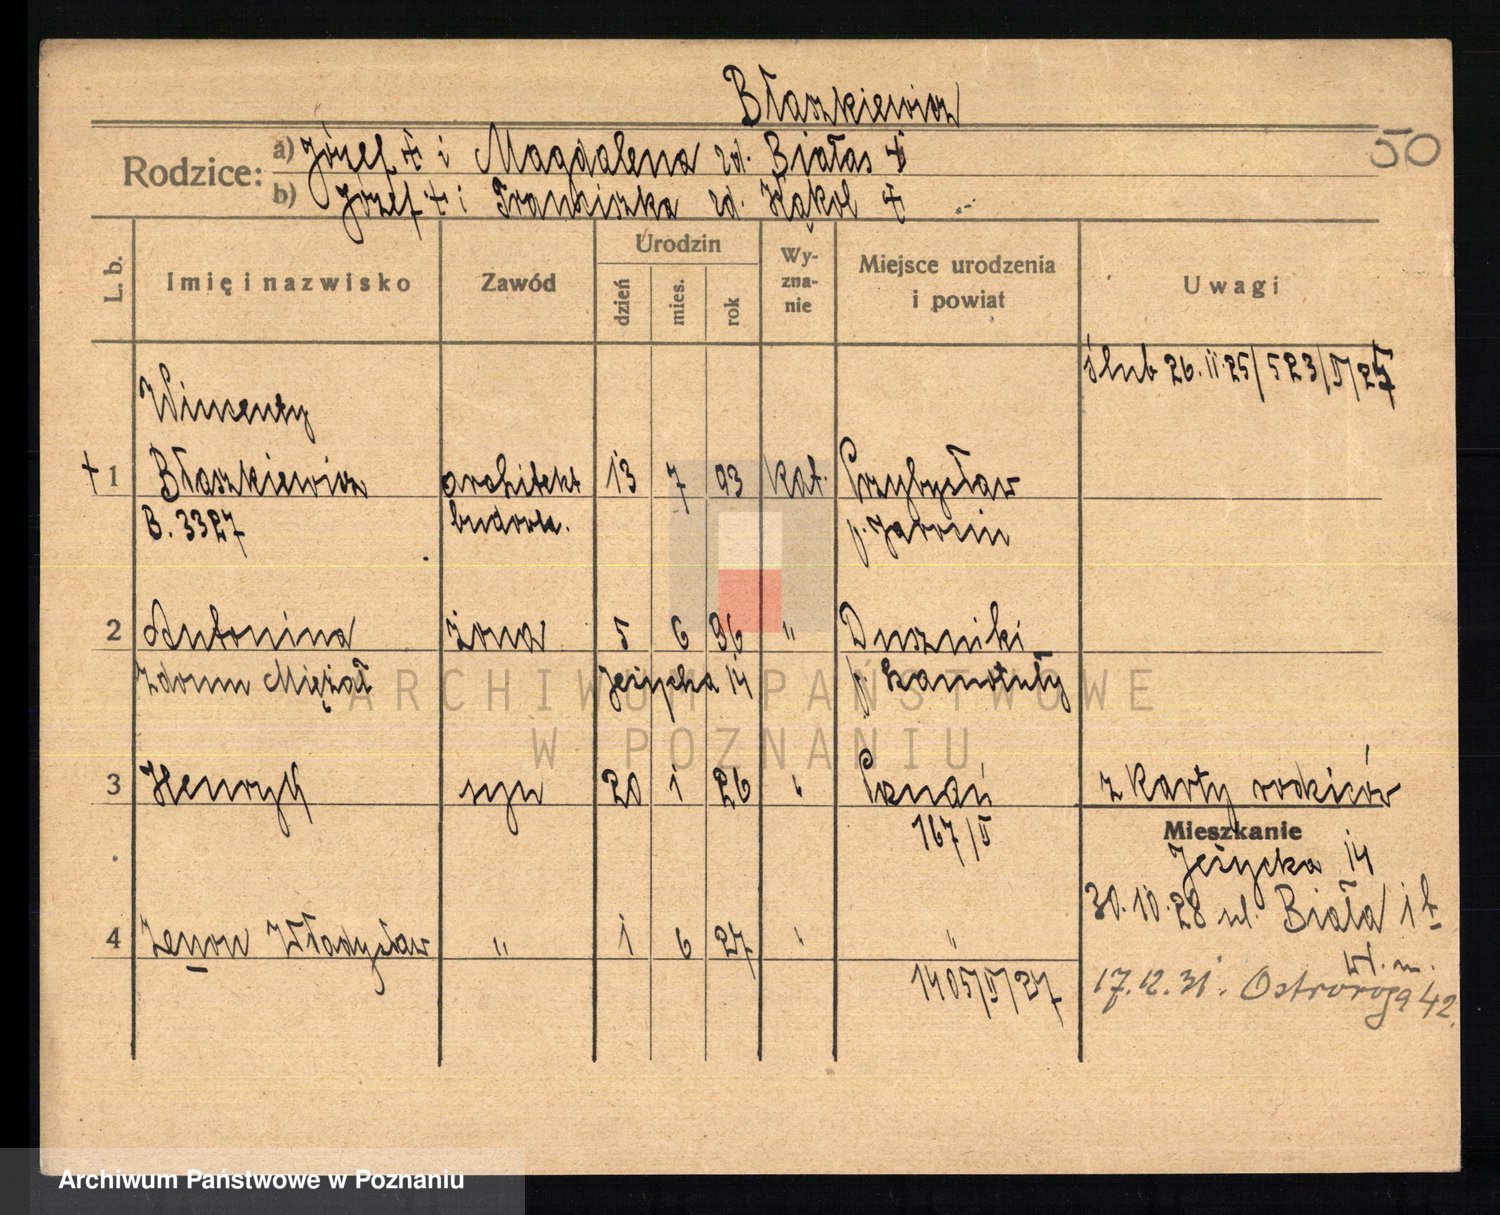 Błaszkiewicz
50
Rodzice: a) Józef + i Magdalena zd. Białas +
b) Józef + i Franciszka zd. Kąkol +
L. b. Imię i nazwisko Zawód Urodzin dzień mies. rok Wy-zna-nie Miejsce urodzenia i powiat Uwagi
ślub 26.II.25/523/V/25
Wincenty
+ 1 Błaszkiewicz architekt 13 7 93 kat. Przybysław
B. 3327 budown. p. Jarocin
2 Antonina żona 5 6 96 " Duszniki
z domu Miężał Jeżycka 14 p. Szamotuły
3 Henryk syn 20 1 26 " Poznań z karty rodziców
167/V Mieszkanie
Jeżycka 14
30.10.28 ul. Biała 1
4 Zenon Władysław " 1 6 27 " "
W. m.
1405/V/27 17.12.31. Ostroroga 42.
ARCHIWUM PAŃSTWOWE
W POZNANIU
Archiwum Państwowe w Poznaniu